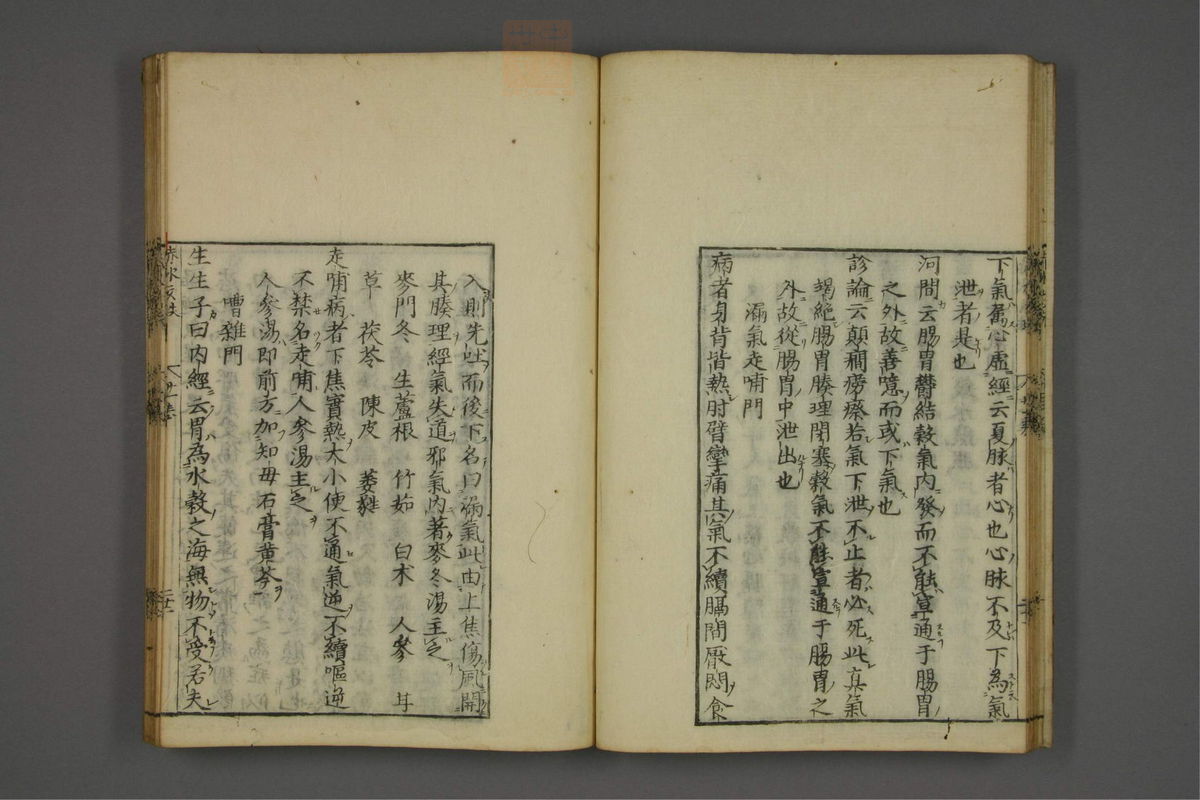 下氣屬心虛經云夏脉者心也心脉不及下為氣
泄者是也
河間云腸胃鬱結穀氣内發而不能宣通于腸胃
之外故善噫而或下氣也
診論云顛癇癆瘵若氣下泄不止者必死此真氣
竭絶腸胃腠理閉塞穀氣不能宣通于腸胃之
外故從腸胃中泄出也
漏氣走哺門
病者身背皆熱肘臂攣痛其氣不續膈間厭悶食
入則先吐而後下名曰漏氣此由上焦傷風開
其腠理經氣失道邪氣内著麥冬湯主之
麥門冬 生蘆根 竹茹 白术 人參 甘
草 茯苓 陳皮 萎蕤
走哺病者下焦實熱大小便不通氣逆不續嘔逆
不禁名走哺人參湯主之
人參湯即前方加知母石膏黄芩
嘈雜門
生生子曰内經云胃為水穀之海無物不受若夫
赤水玄珠